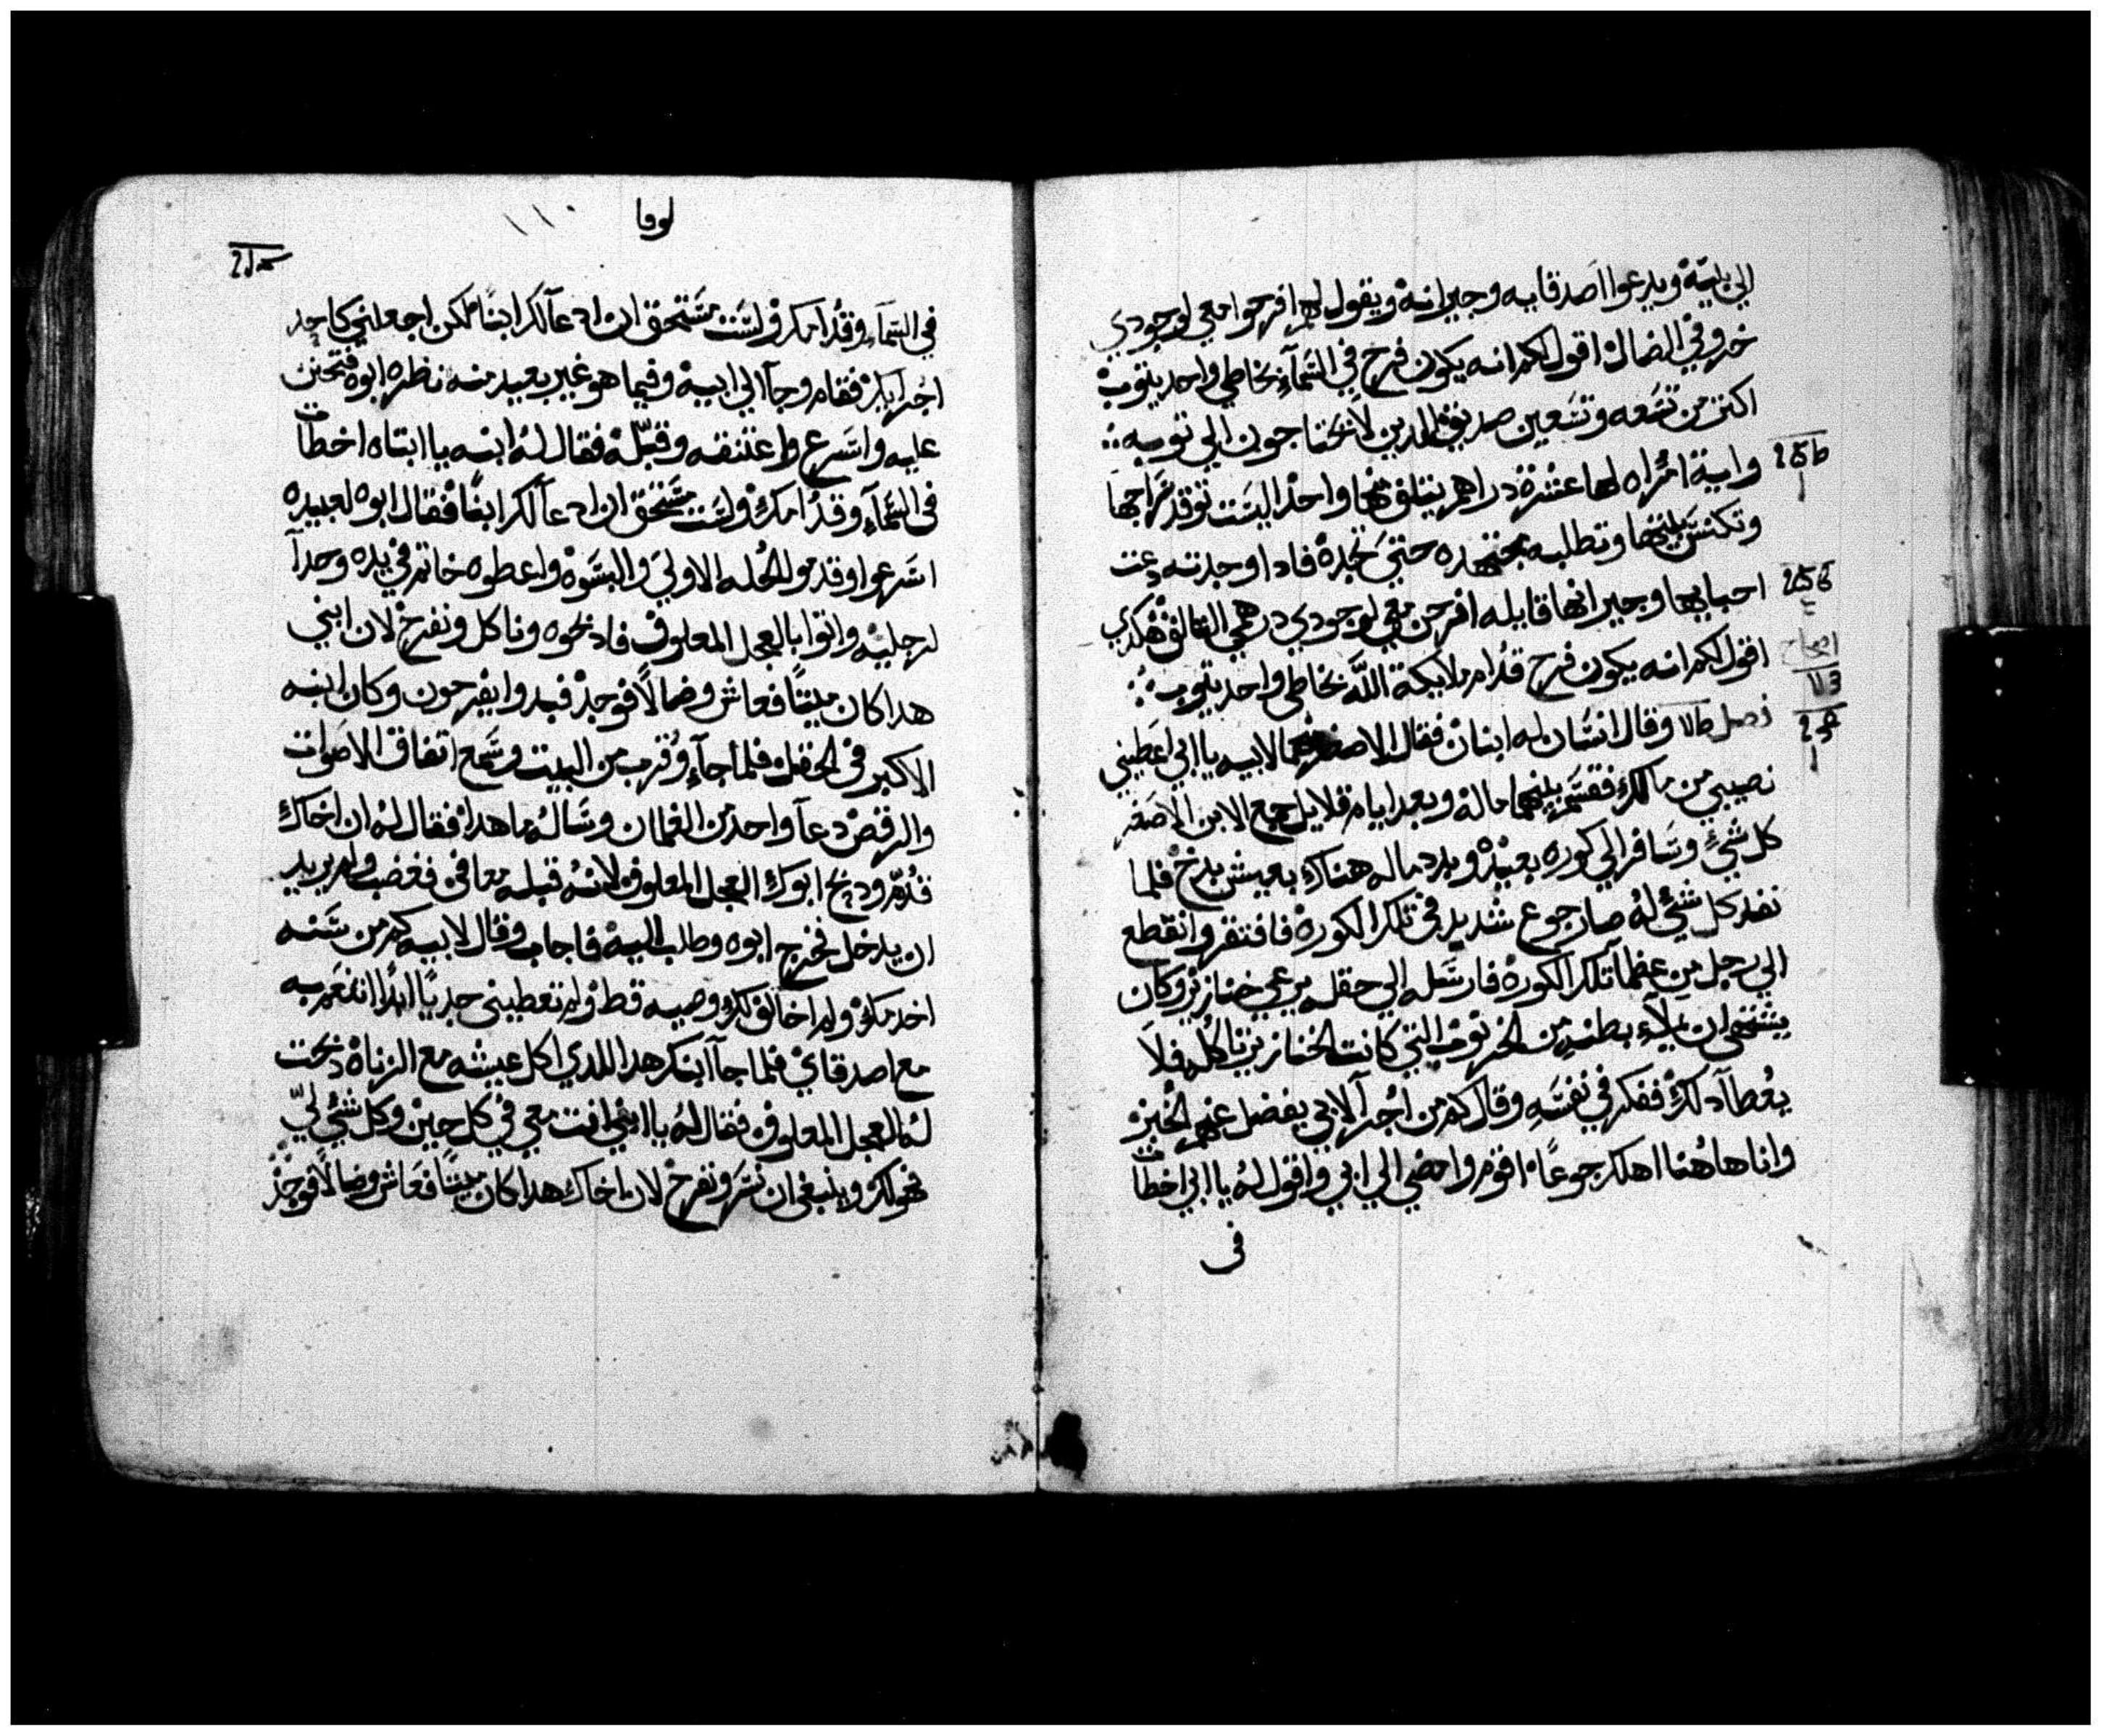 الي بيته ويدعوا اصدقايه وجيرانه ويقول لهم افرحوا معي لوجودي
خروفي الضال اقول لكم انه يكون فرح في السَّمآء بخاطي واحد يتوب
اكتر من تسَعه وتسَعين صديق الدين لا يحتاجون الي توبه
واية امراه لها عشرة دراهم يتلف منها واحد اليسَت توقد سَراجها
وتكنسَ بيتها وتطلبه مجتهده حتي تجده فادا وجدته دعت
احبابها وجيرانها قايله افرحن معي لوجودي درهمي التالف هكدي
اقول لكم انه يكون فرح قدام ملايكة اللّه بخاطي واحد يتوب
فصل وقال انسَان له ابنان فقال الاصغر منهما لابيه يا ابي اعطيني
نصيبي من مالك فقسَم بينهما ماله وبعد ايام قلايل جمع الابن الاصغر
كل شيء وسَافر الي كوره بعيده وبدد ماله هناك بعيش بدخ فلما
نفد كل شيء له صار جوع شديد في تلك الكورة فافتقر وانقطع
الي رجل من عظمآ تلك الكورة فارسَله الي حقله يرعي خنازير وكان
يشتهي ان يملآء بطنه من الخرنوب التي كانت الخنازير تاكله فلا
يُعطآ دلك ففكر في نفسَه وقال كم من اجرآ لابي يفضل عنهم الخبز
وانا هاهُنا اهلك جوعًا اقوم وامضي الي ابي واقول له يا ابي اخطات
في
لوقا
في السَّمآء وقدامك ولسَت مسَتحق ان ادعآ لك ابنًا لكن اجعلني كاحد
اجرآيك فقام وجآ الي ابيه وفيما هو غير بعيد منه نظره ابوه فتحنن
عليه واسَرع واعتنقه وقبّله فقال له ابنه يا ابتاه اخطات
في السَّمآء وقدامك ولسَت مسَتحق ان ادعآ لك ابنًا فقال ابوه لعبيده
اسَرعوا وقدموا الحُله الاولي والبسَوه واعطوه خاتم في يده وحدآ
لرجليه واتوا بالعجل المعلوف فادبحوه وناكل ونفرح لان ابني
هدا كان ميتًا فعاش وضالًا فوجد فبدوا يفرحون وكان ابنه
الاكبر في الحقل فلما جآء وقرب من البيت وسَمع اتفاق الاصوات
والرقص دعآ واحد من الغلمان وسَاله ما هدا فقال له ان اخاك
قدم ودبح ابوك العجل المعلوف لانه قبله معافي فغضب ولم يريد
ان يدخل فخرج ابوه وطلب اليه فاجاب وقال لابيه كم من سَنه
اخدمك ولم اخالف لك وصيه قط ولم تعطيني جديًا ابدًا اتنعم به
مع اصدقاي فلما جآ ابنك هدا الدي اكل عيشه مع الزناة دبحت
له العجل المعلوف فقال له يا ابني انت معي في كل حين وكل شيء لي
فهو لك وينبغي ان نسَر ونفرح لان اخاك هدا كان ميتًا فعَاش وضالًا فوجد